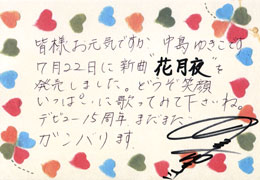 皆様お元気ですか。中島ゆきこです
7月22日に新曲"花月夜"を
発売しました。どうぞ笑顔
いっぱいに歌ってみて下さいね。
デビュー15周年まだまだ
ガンバリます